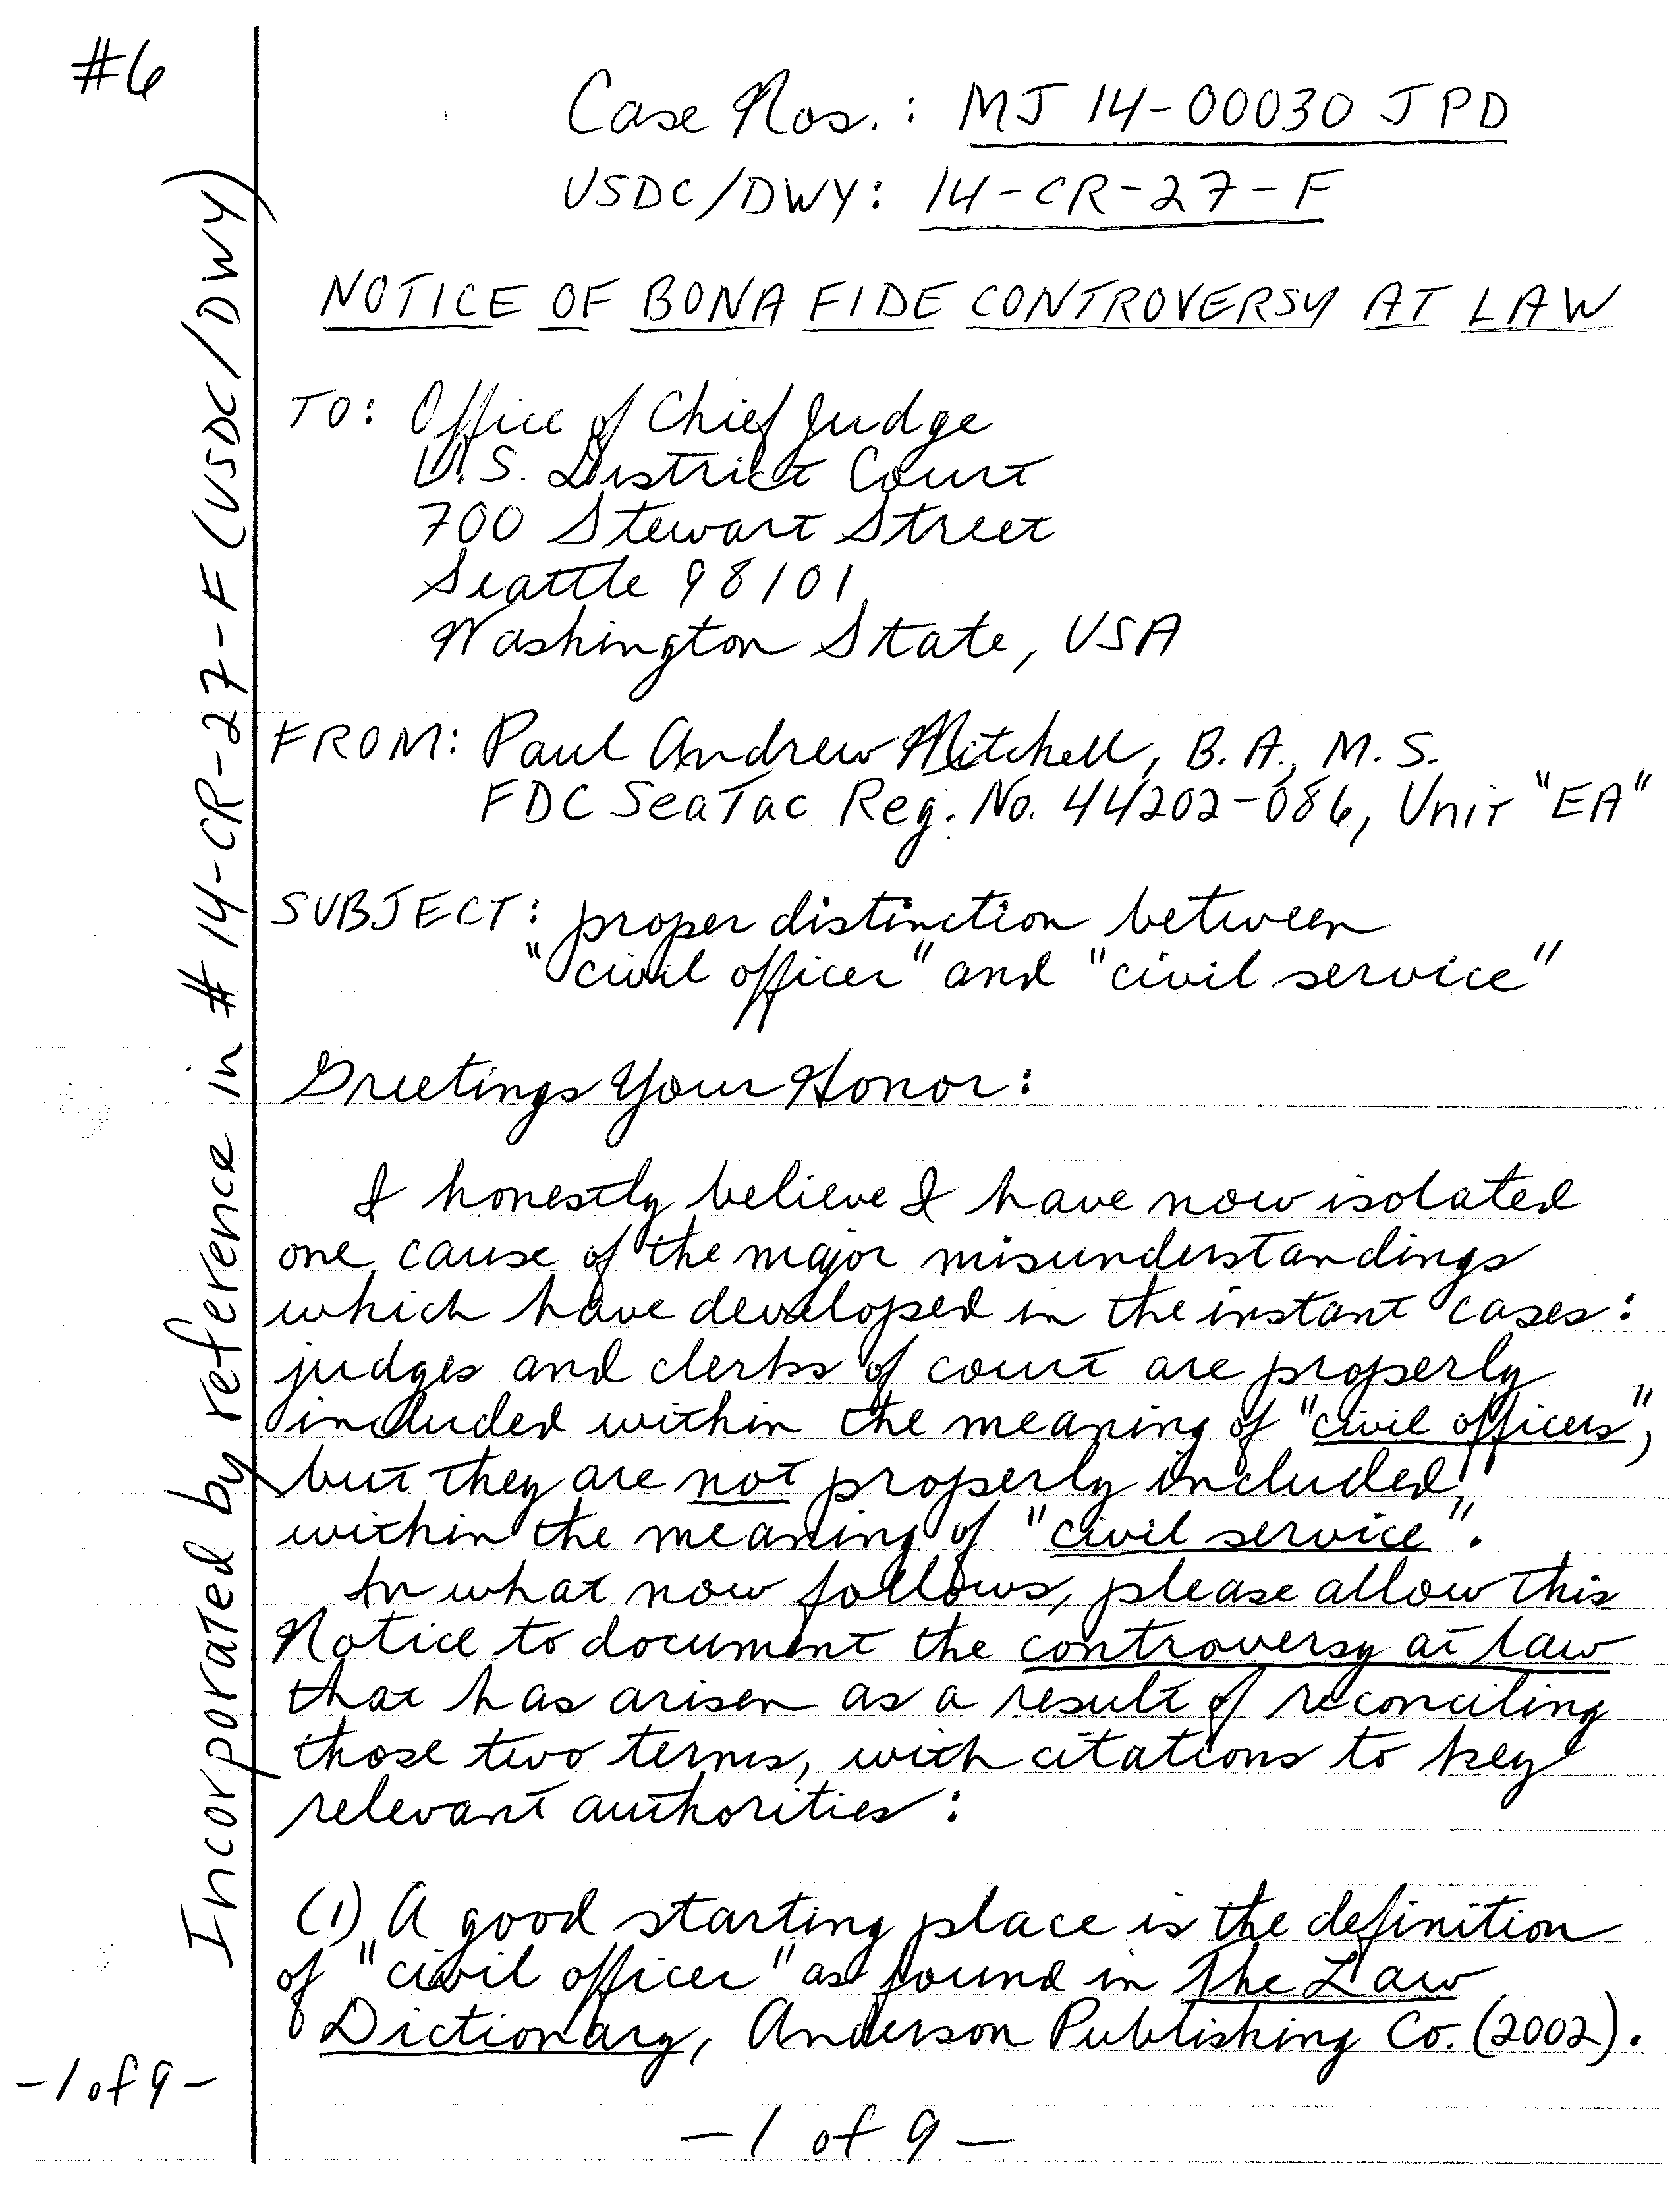 #6
Case Nos.: MJ 14-00030 JPD
USDC/DWY: 14-CR-27-F
NOTICE OF BONA FIDE CONTROVERSY AT LAW
TO: Office of Chief Judge
U.S. District Court
700 Stewart Street
Seattle 98101
Washington State, USA
FROM: Paul Andrew Mitchell, B.A., M.S.
FDC SeaTac Reg. No. 44202-086, Unit "EA"
SUBJECT: proper distinction between
"civil officer" and "civil service"
Greetings Your Honor:
I honestly believe I have now isolated
one cause of the major misunderstandings
which have developed in the instant cases:
judges and clerks of court are properly
included within the meaning of "civil officers",
but they are not properly included
within the meaning of "civil service".
In what now follows, please allow this
Notice to document the controversy at law
that has arisen as a result of reconciling
those two terms, with citations to key
relevant authorities:
(1) A good starting place is the definition
of "civil officer" as found in The Law
Dictionary, Anderson Publishing Co. (2002).
-1 of 9-
-1 of 9-
Incorporated by reference in #14-CR-27-F (USDC/DWY)